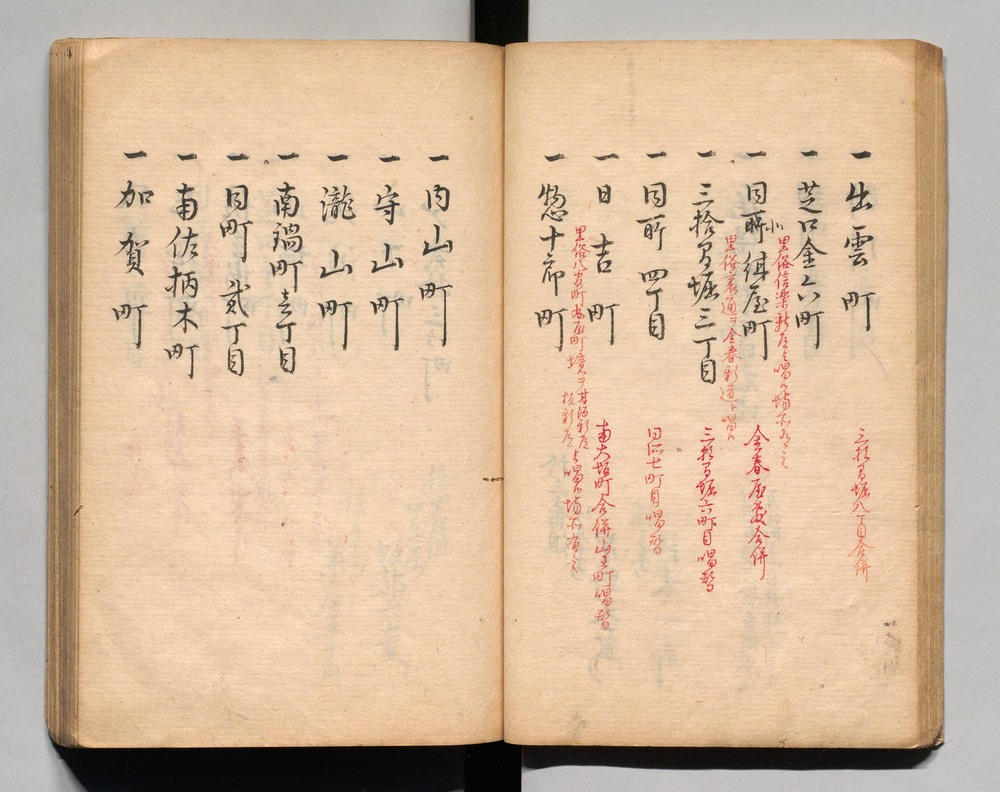 一 出雲町
三拾間堀八丁目合併
一 芝口金六町
里俗信楽新道と唱候場所有之
一 同所 緋屋町
金春屋敷合併
里俗裏通ヲ金春新道ト唱候
一 三拾間堀三丁目
三拾間堀六町目唱替
一 同所 四丁目
同所七町目唱替
一 日吉町
南大坂町合併山王町唱替
里俗八官町丸屋町境ヲ
新道と唱候場所有之
一 惣十郎町
一 内山町
一 守山町
一 瀧山町
一 南鍋町壱丁目
一 同町 貳丁目
一 南佐柄木町
一 加賀町